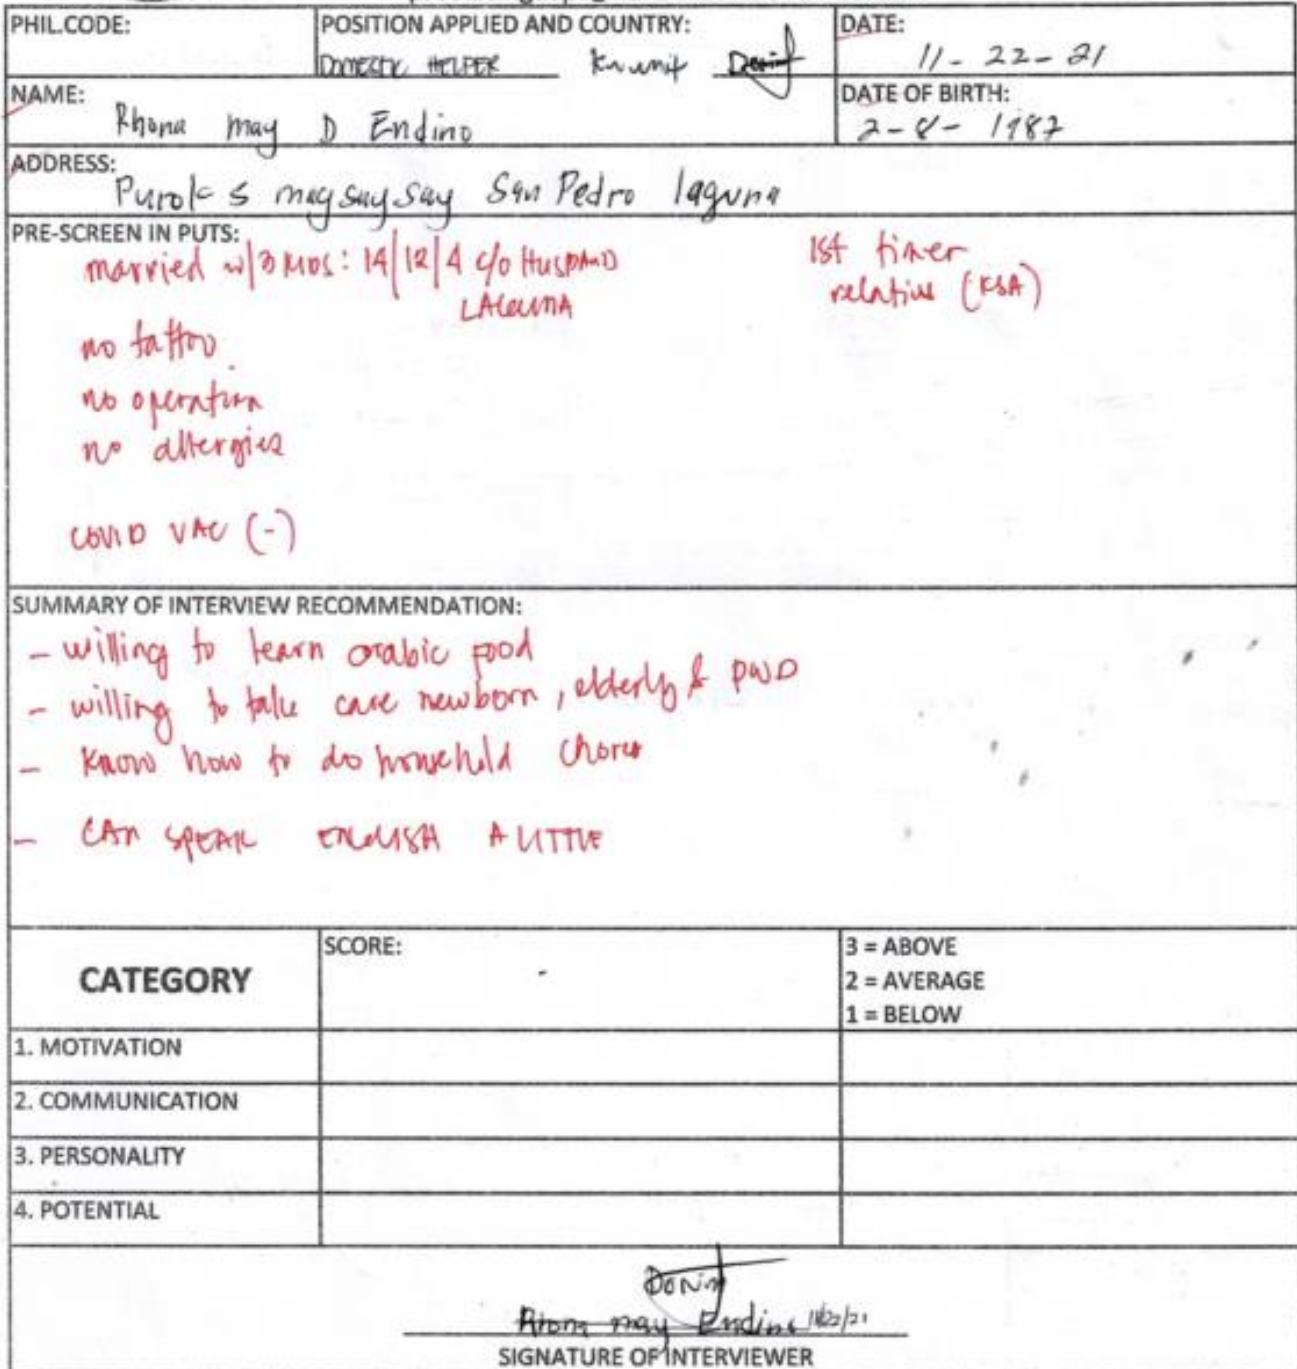 PHIL.CODE:
POSITION APPLIED AND COUNTRY:
DOMESTIC HELPER Kuwait
DATE:
11-22-21
NAME:
Rhona may D Endino
DATE OF BIRTH:
2-8-1987
ADDRESS:
Purok 5 magsaysay San Pedro laguna
PRE-SCREEN IN PUTS:
married w/3 KIDS: 14|12|4 c/o HUSBAND
LAGUNA
1st timer
relative (KSA)
no tattoo
no operation
no allergies
COVID VAC (-)
SUMMARY OF INTERVIEW RECOMMENDATION:
- willing to learn arabic food
- willing to take care newborn, elderly & PWD
- know how to do household chores
- CAN SPEAK ENGLISH A LITTLE
CATEGORY
SCORE:
3 = ABOVE
2 = AVERAGE
1 = BELOW
1. MOTIVATION
2. COMMUNICATION
3. PERSONALITY
4. POTENTIAL
Rhona may Endino 11/22/21
SIGNATURE OF INTERVIEWER